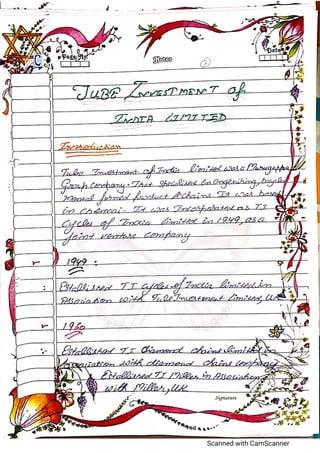 Page No.
Notes
Date
TUBE INVESTMENT of
INDIA LIMITED
Introduction
Tube Investment of India limited was a Murugappa
Group Company. That specilised in engineering, bicycle
Metal formed product & chains. It was based
in chennai. It was Incorporated as TI
Cycles of India limited in 1949, as a
joint venture company
1949 :
Established TI Cycles of India limited in
Association with Tube Investment limited, UK
1960
Established TI diamond chains limited in
association with diamond chains company
Established TI Miller in Association
with Miller, UK
Signature
Scanned with CamScanner